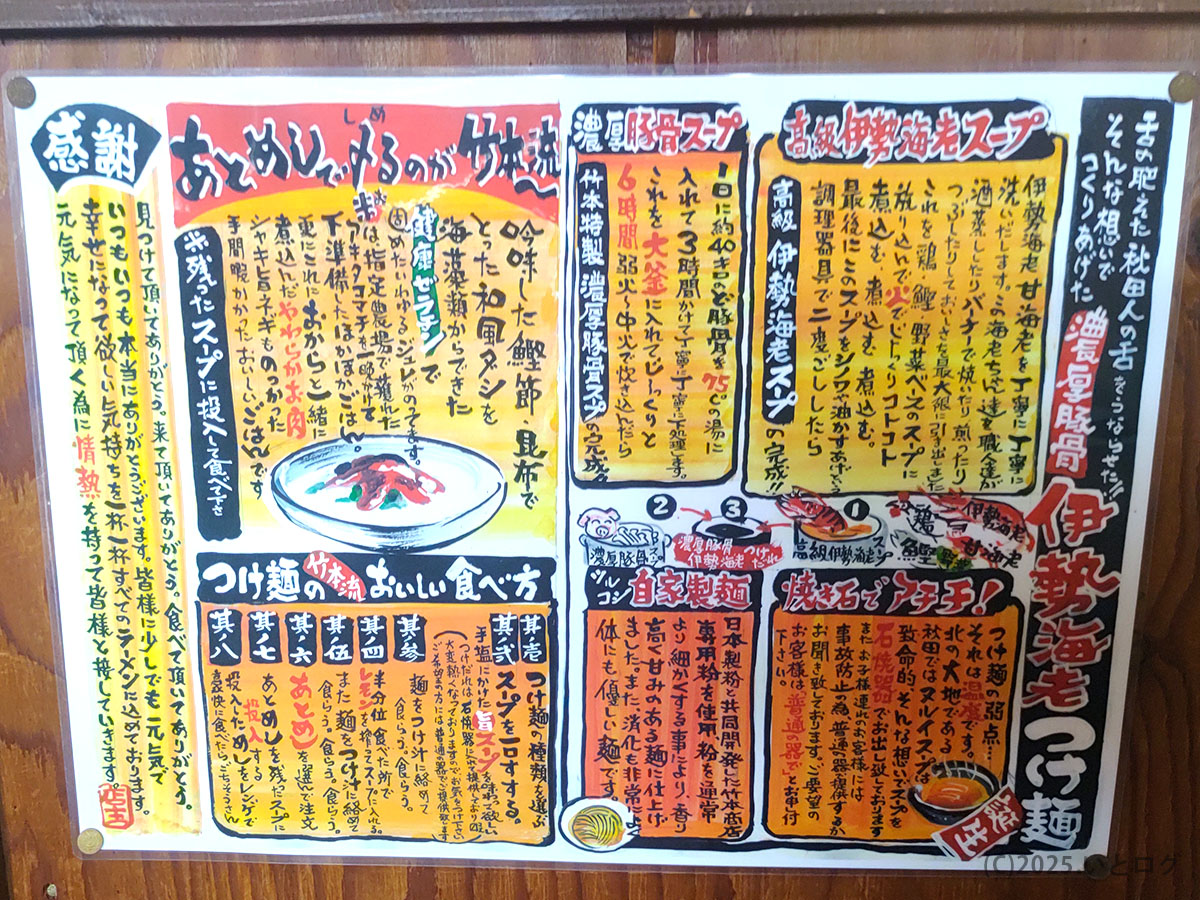 舌の肥えた秋田人の舌をうならせた!!
そんな想いで
つくりあげた
濃厚豚骨
伊勢海老つけ麺
高級伊勢海老スープ
伊勢海老、甘海老を丁寧に丁寧に
洗いだします。この海老ちゃん達を職人達が
酒蒸ししたりバーナーで焼いたり煎ったり
つぶしたりしておいしさを最大限に引き出しました
これを鶏 鰹 野菜ベースのスープに
放り込んで火でじっくりコトコト
煮込む、煮込む、煮込む。
最後にこのスープをシノワや油かすあげという
調理器具で二度ごししたら
高級 伊勢海老スープの完成!!
濃厚豚骨スープ
1日に約40キロのど豚骨を75℃の湯に
入れて3時間かけて丁寧に丁寧に下処理します。
これを大釜に入れてじーっくりと
6時間弱火〜中火で炊き込んだら
竹本特製 濃厚豚骨スープの完成
①
②
③
伊勢海老
甘海老
鶏
鰹
野菜
高級伊勢海老スープ
濃厚豚骨スープ
濃厚豚骨
伊勢海老つけだれ
焼き石でアチチ!
つけ麺の弱点…
それは温度です。
北の大地である
秋田ではヌルイスープは
致命的、そんな想いでスープを
石焼器でお出し致しております
またお子様連れのお客様には
事故防止の為、普通の器提供するか
お聞き致しております、ご要望の
お客様は普通の器でとお申付
下さい。
シルコシ
自家製麺
日本製粉と共同開発した竹本商店
専用粉を使用、粉を通常
より細かくする事により、香り
高く甘みのある麺に仕上げ
ました、また消化も非常によく
体にも優しい麺です。
しめ
あとめしで〆るのが竹本流〜
吟味した鰹節、昆布で
とった和風ダシを
海藻類からできた
健康ゼラチンで
固めたいわゆるジュレがのってます。
お米は指定農場で穫れた
アキタコマチを一晩かけて
下準備したほかほかごはん。
更にこれにおからと一緒に
煮込んだやわらかお肉
シャキシャキ旨ネギものっかった
手間暇かかったおいしいごはんです
※残ったスープに投入して食べて下さい
つけ麺の竹本流おいしい食べ方
其ノ壱 つけ麺の種類を選ぶ
其ノ弐 スープを一口する。
手塩にかけた旨スープを味わって欲しい
(つけだれは石焼器に入れて提供しており
大変熱くなっておりますのでお気をつけ下さい
ご希望の方には普通の器でご提供致します)
其ノ参 麺をつけ汁に絡めて
食らう。食らう。
其ノ四 半分位食べた所で
レモンを搾ってスープに入れる。
其ノ伍 また麺をつけ汁に絡めて
食らう。食らう。食らう。
其ノ六 あとめしを選んで注文
其ノ七 あとめしを残ったスープに
投入する
其ノ八 投入しためしをレンゲで
豪快に食べたら、ごちそうさん
感謝
見つけて頂いてありがとう。来て頂いてありがとう。食べて頂いてありがとう。
いつもいつも、本当にありがとうございます。皆様に少しでも元気で
幸せになって欲しい気持ちを一杯一杯すべてのラーメンに込めております。
元気になって頂く為に情熱を持って皆様と接していきます。
店主
(C)2025 いとログ